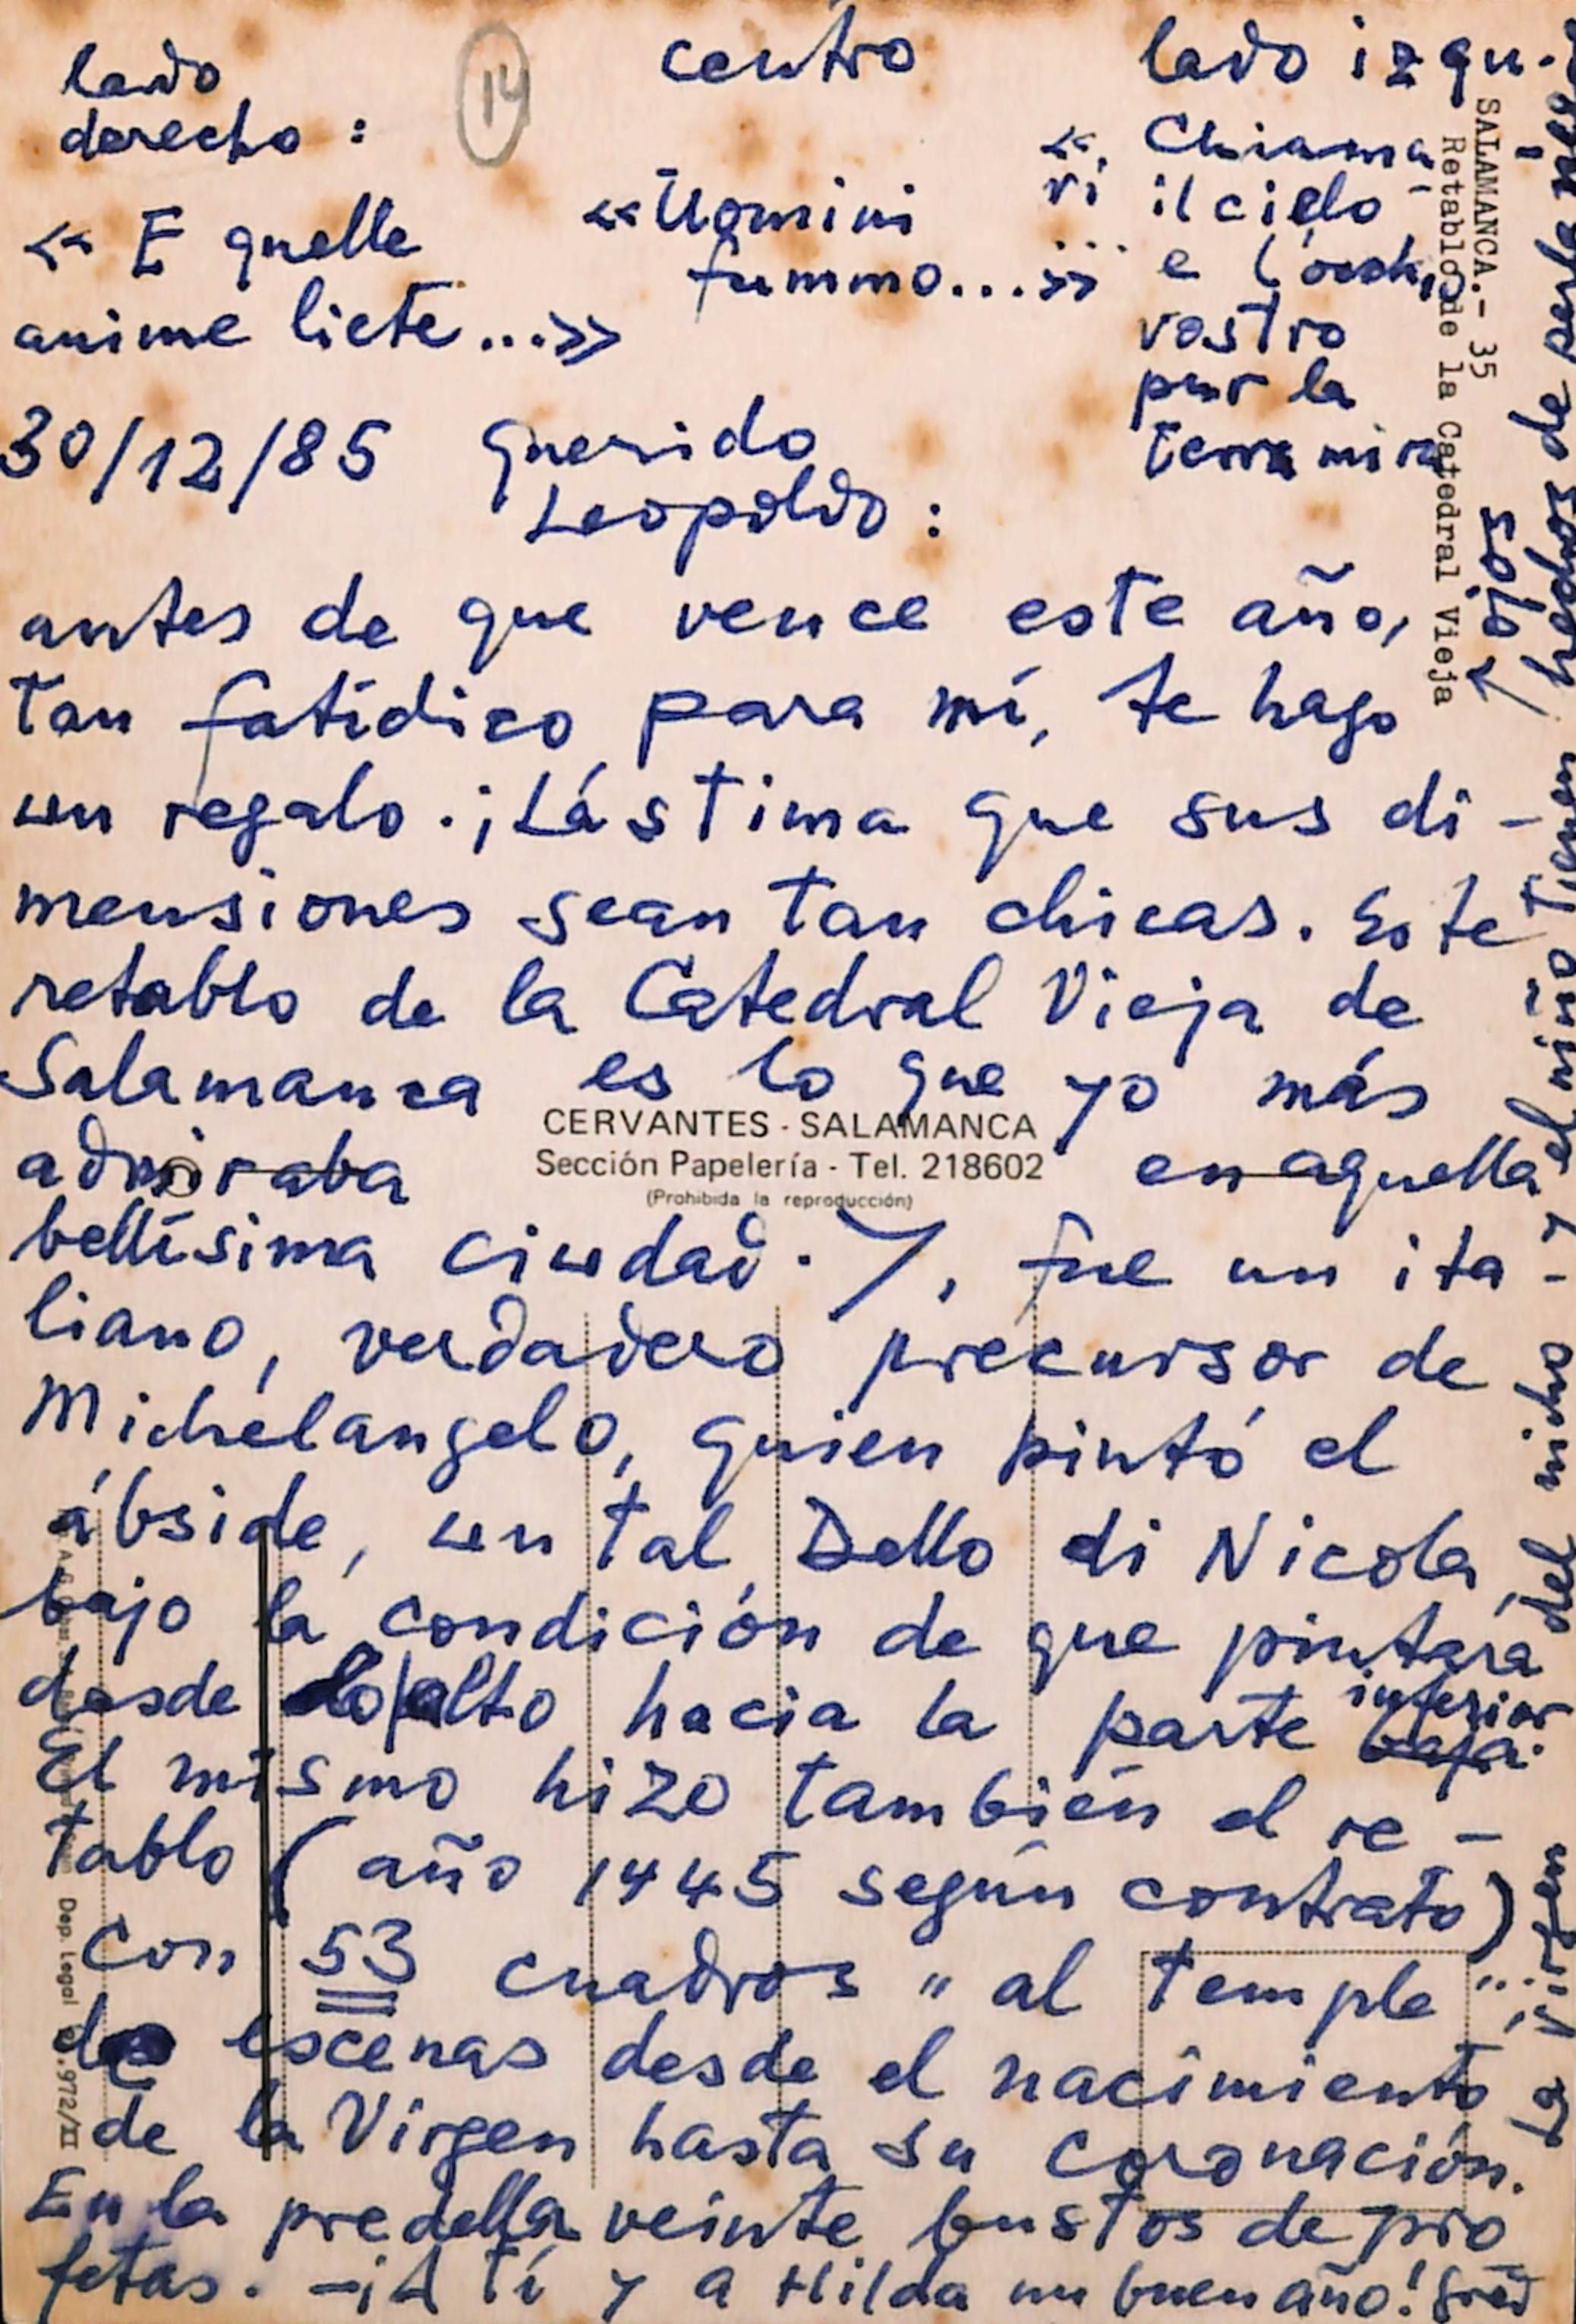 lado
derecho :
« E quelle
anime liete...»
14
centro
«Uomini
fummo...»
lado izqu.
«. Chiama
vi il cielo
... e l'occhio
vostro
pur la
terra mira
30/12/85 Querido
Leopoldo :
antes de que vence este año,
tan fatídico para mí, te hago
un regalo. ¡Lástima que sus di-
mensiones sean tan chicas. Este
retablo de la Catedral Vieja de
Salamanca es lo que yo más
admiraba en aquella
bellísima ciudad. Y, fue un ita-
liano, verdadero precursor de
Michelangelo, quien pintó el
ábside, un tal Dello di Nicola,
bajo la condición de que pintara
desde lo alto hacia la parte inferior
baja.
El mismo hizo también el re-
tablo (año 1445 según contrato)
con 53 cuadros "al temple"
de escenas desde el nacimiento
de la Virgen hasta su coronación.
En la predella veinte bustos de pro
fetas. -¡A tí y a Hilda un buen año! Fred
CERVANTES - SALAMANCA
Sección Papelería - Tel. 218602
(Prohibida la reproducción)
SALAMANCA.- 35
Retablo de la Catedral Vieja
Dep. Legal .972/XI
La Virgen del nicho y el niño tienen
ojos
hechos de perla